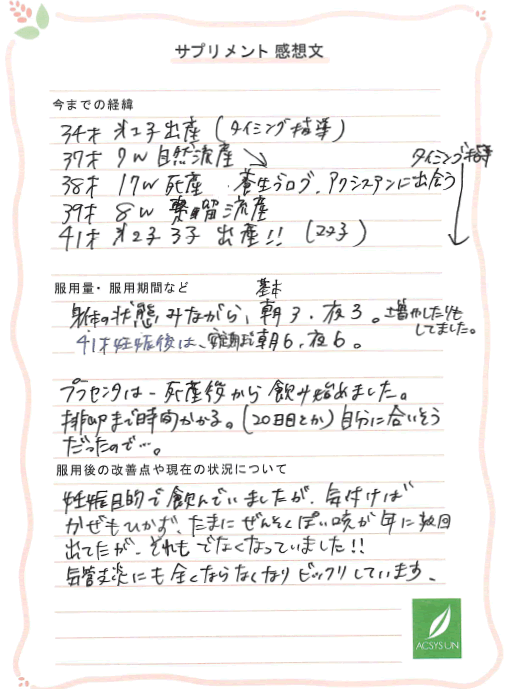 サプリメント 感想文
今までの経緯
34才 第1子出産 (タイミング指導)
37才 9W 自然流産
タイミング指導
38才 17W 死産 養生ブログ、アクシスアンに出会う
39才 8W 稽留流産
41才 第2子 3子 出産!! (双子)
服用量・服用期間など
基本
身体の状態みながら、朝3、夜3。増やしたりも
してました。
41才妊娠後は、安定期まで朝6、夜6。
プラセンタは-死産後から飲み始めました。
排卵まで時間かかる。(20日目とか)自分に合いそう
だったので…。
服用後の改善点や現在の状況について
妊娠目的で飲んでいましたが、気付けば
かぜもひかず、たまにぜんそくぽい咳が年に数回
出てたが、それもでなくなっていました!!
気管支炎にも全くならなくなりビックリしています。
ACSYSUN